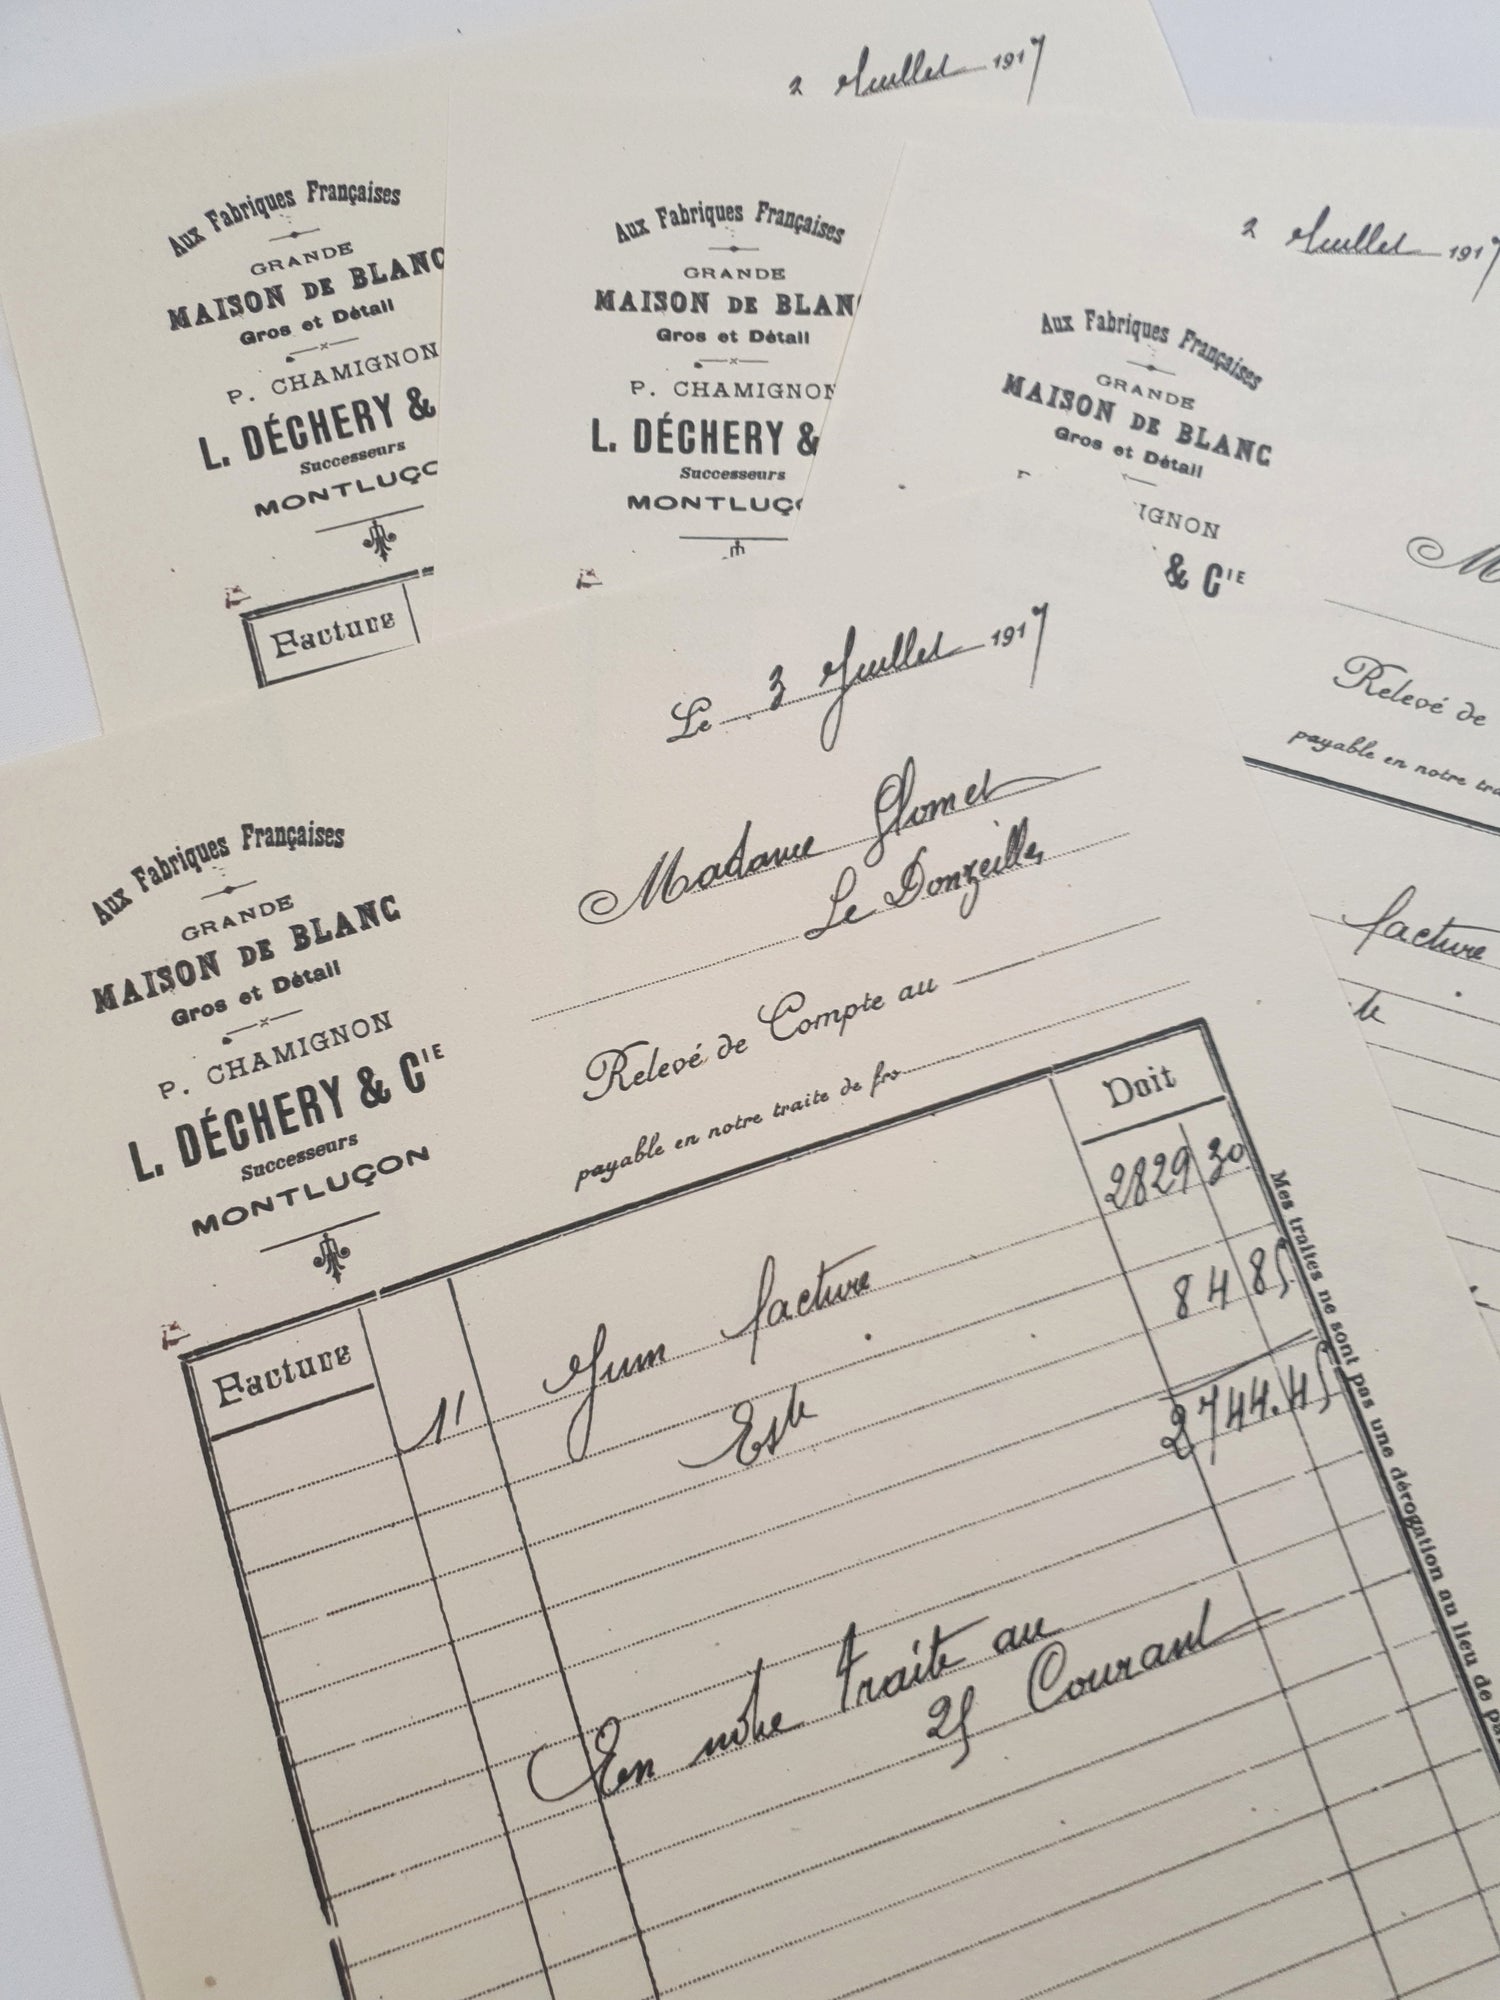 2 Juillet 1917
Aux Fabriques Françaises
GRANDE
MAISON DE BLANC
Gros et Détail
P. CHAMIGNON
L. DÉCHERY &
Successeurs
MONTLUÇO
Facture
Aux Fabriques Françaises
GRANDE
MAISON DE BLAN
Gros et Détail
P. CHAMIGNON
L. DÉCHERY &
Successeurs
MONTLUÇ
2 Juillet 1917
Aux Fabriques Françaises
GRANDE
MAISON DE BLANC
Gros et Détail
IGNON
& CIE
M
Relevé de
payable en notre tra
facture
Le 3 Juillet 1917
Madame Glomet
Le Donzeilles
Aux Fabriques Françaises
GRANDE
MAISON DE BLANC
Gros et Détail
P. CHAMIGNON
L. DÉCHERY & CIE
Successeurs
MONTLUÇON
Relevé de Compte au
payable en notre traite de frs
Facture
Doit
1 Juin facture 2829 30
Este 84 85
2744.45
En notre traite au
25 Courant
Mes traites ne sont pas une dérogation au lieu de pa